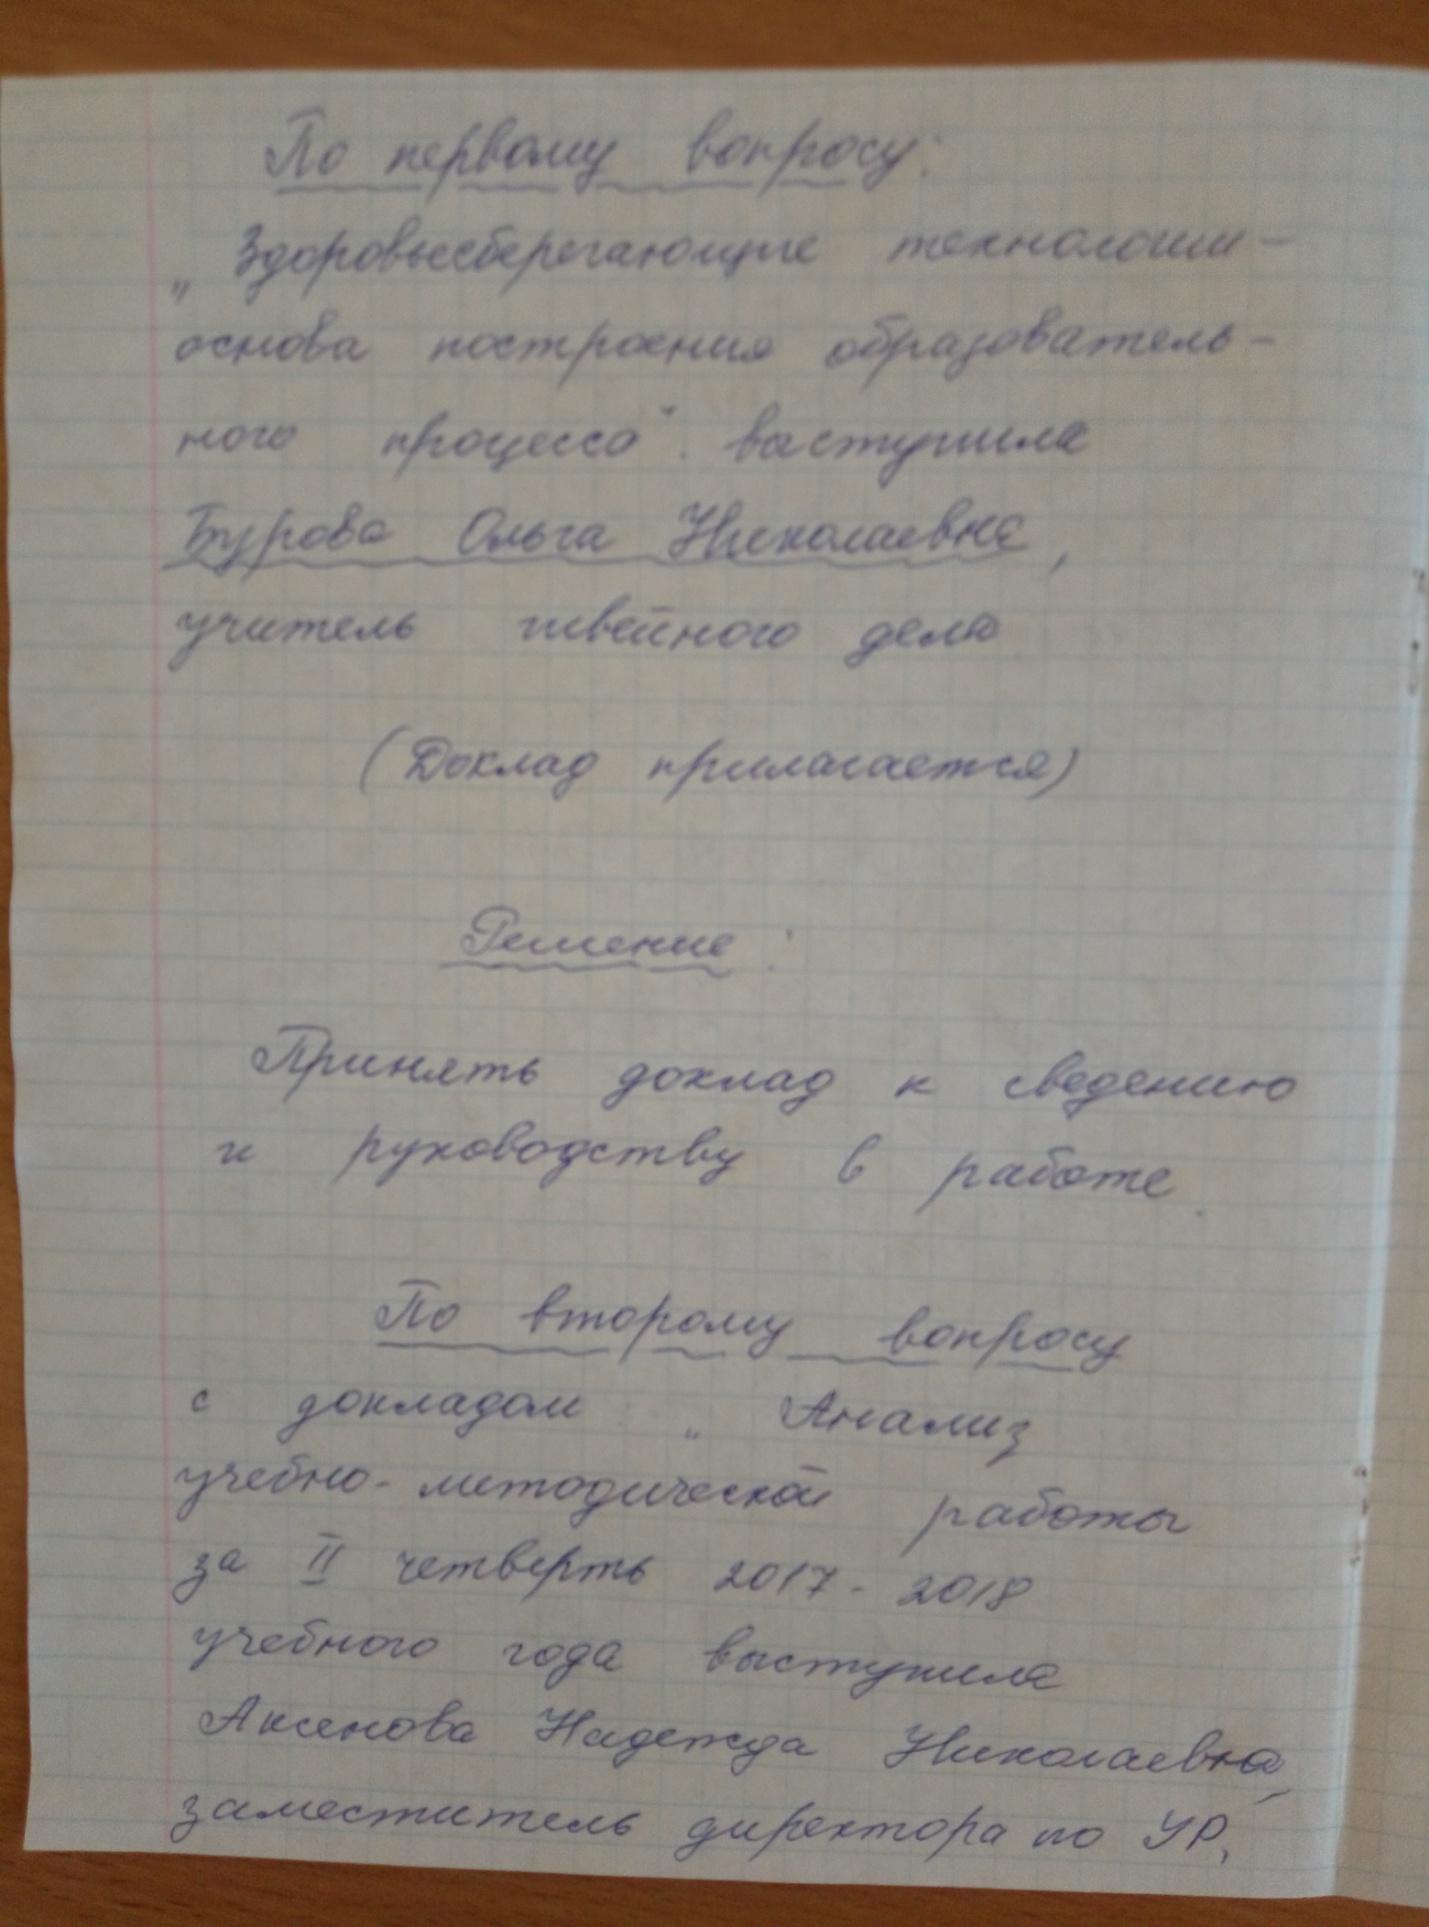 По первому вопросу:
„Здоровьесберегающие технологии –
основа построения образователь-
ного процесса". выступила
Бурова Ольга Николаевна,
учитель швейного дела
(Доклад прилагается)
Решение:
Принять доклад к сведению
и руководству в работе.
По второму вопросу
с докладом „Анализ
учебно-методической работы
за II четверть 2017-2018
учебного года выступила
Аксенова Надежда Николаевна,
заместитель директора по УР.